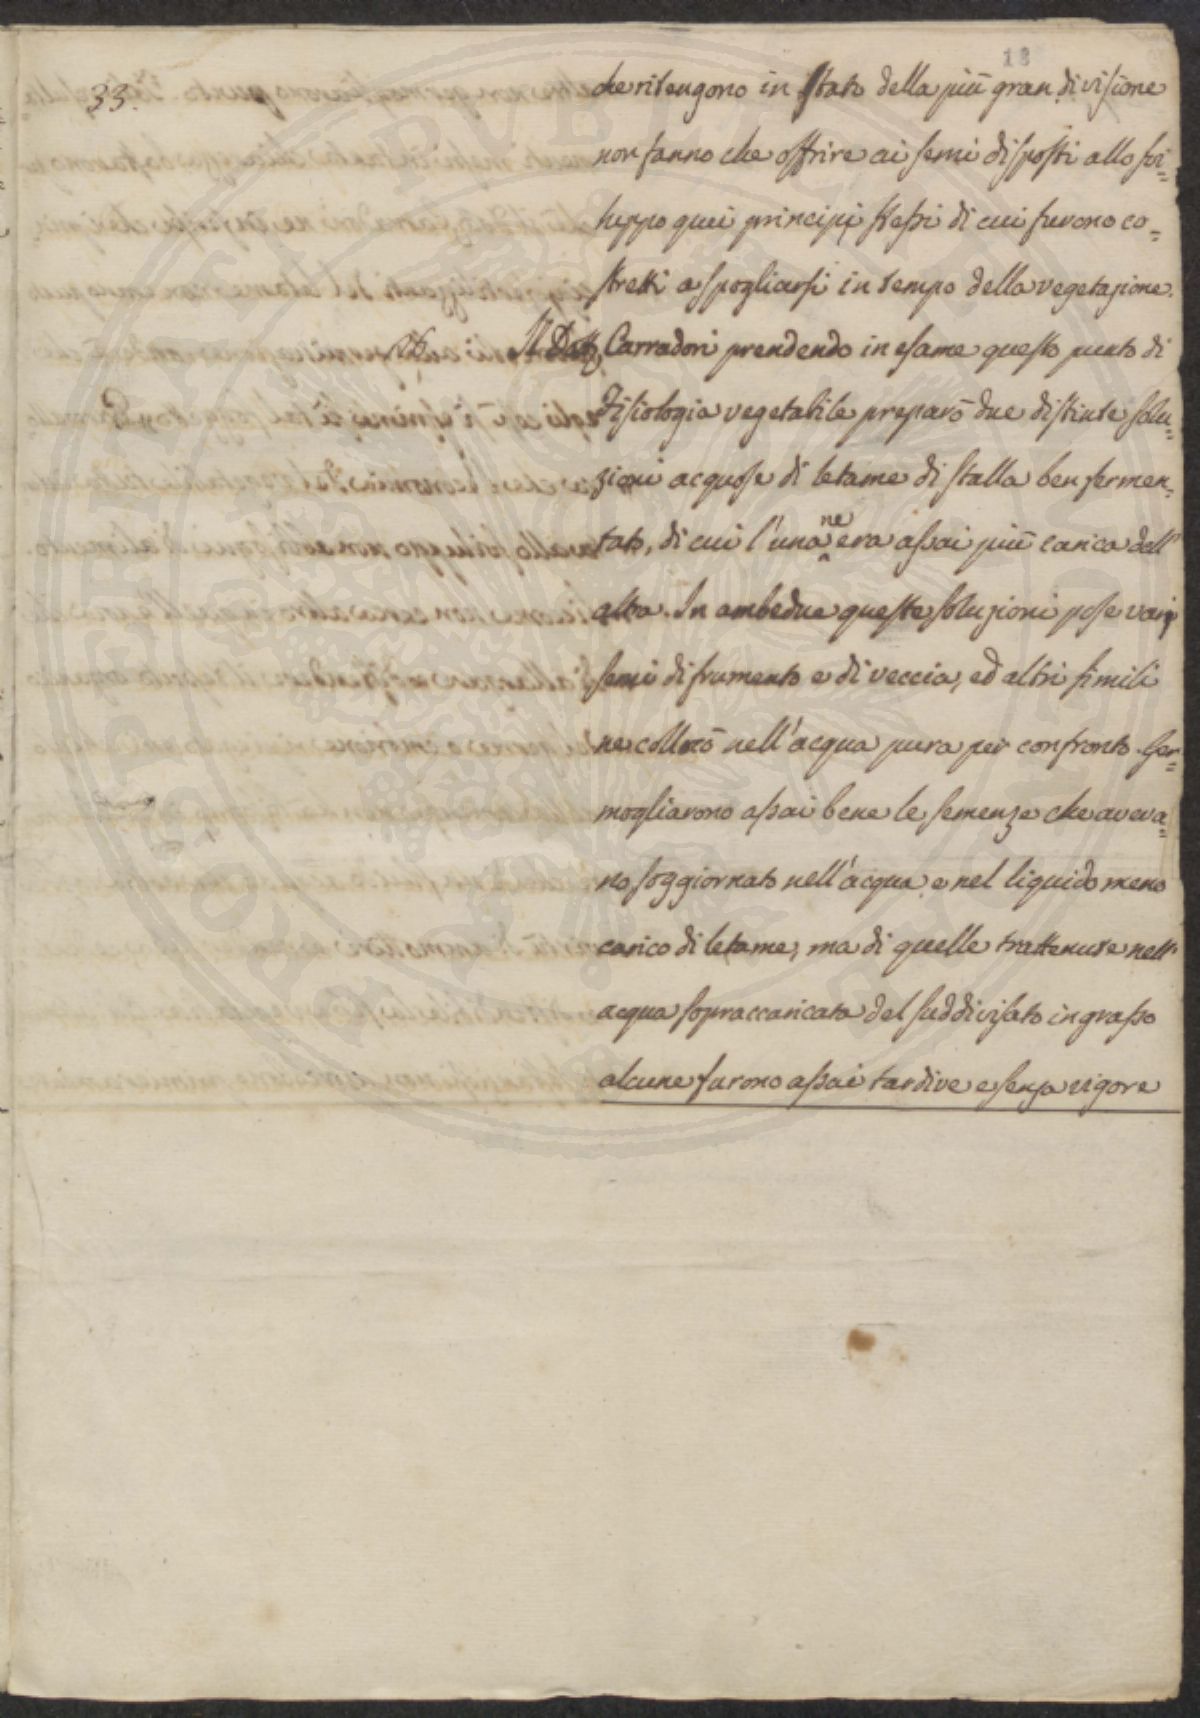 18
33.
che ritengono in stato della più gran divisione
non fanno che offrire ai semi disposti allo svi=
luppo quei principj stessi di cui furono co=
stretti a spogliarsi in tempo della vegetazione.
Il Dott. Carradori prendendo in esame questo punto di
Fisiologia vegetabile preparò due distinte solu=
zioni acquose di letame di stalla ben fermen=
tato, di cui l'una ne era assai più carica dell'
altra. In ambedue queste soluzioni pose varj
semi di frumento e di veccia, ed altri simili
ne collocò nell'acqua pura per confronto. Ger=
mogliarono assai bene le semenze che aveva=
no soggiornato nell'acqua e nel liquido meno
carico di letame, ma di quelle trattenute nell'
acqua sopraccaricata del suddivisato ingrasso
alcune furono assai tardive e senza vigore